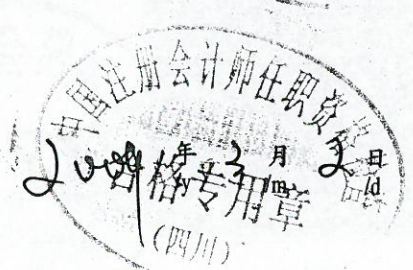 中国注册会计师任职资格检
2009年3月2日
/y /m /d
合格专用章
(四川)